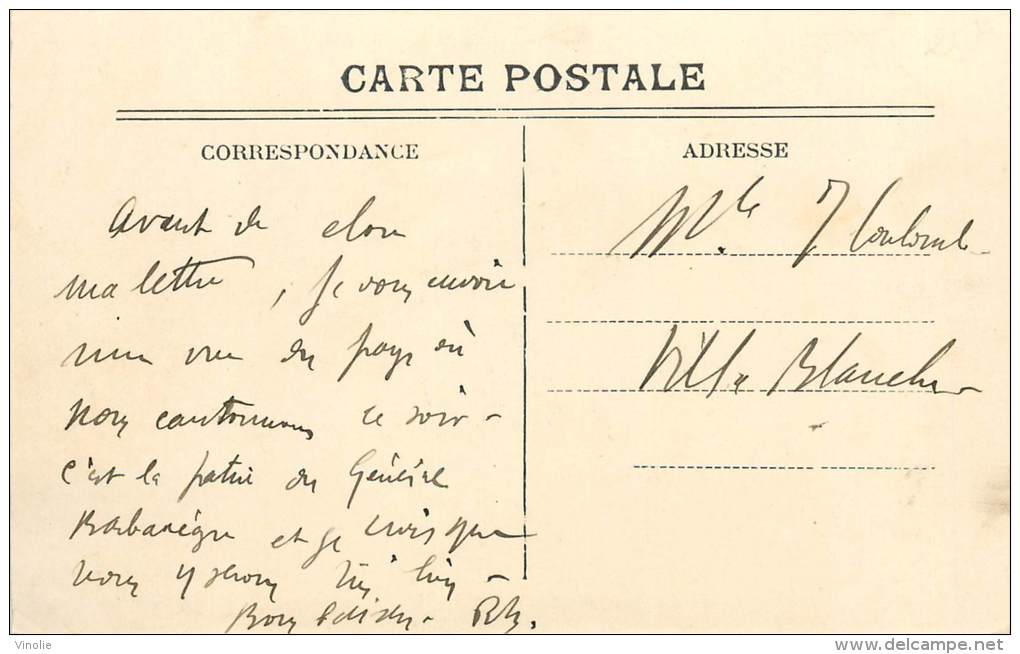 CARTE POSTALE
CORRESPONDANCE
ADRESSE
Avant de clore
ma lettre, je vous envoie
une vue du pays où
nous cantonnons ce soir -
c'est la patrie du Général
Barbanègre et je crois que
nous y serons très bien -
Mlle J Coulomb
Villa Blanche
Vinolie
delcampe.net